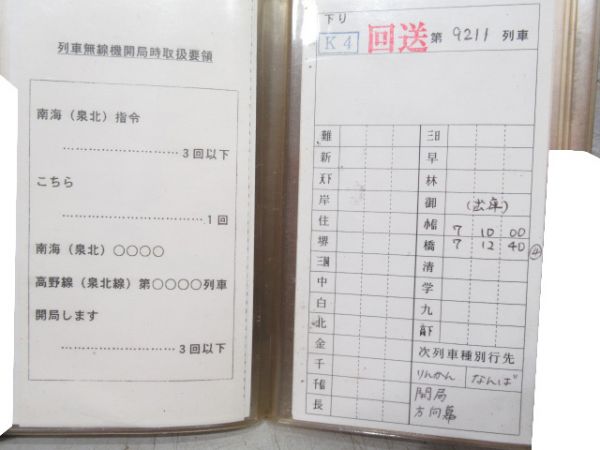 列車無線機開局時取扱要領
南海（泉北）指令
……………………………3回以下
こちら
……………………………………1回
南海（泉北）〇〇〇〇
高野線（泉北線）第〇〇〇〇列車
開局します
……………………………3回以下
下り
K4 回送 第 9211 列車
難
新
天下
岸
住
堺
三国
中
白
北
金
千
千船
長
三日
早
林
御 (出庫)
帖 7 10 00
橋 7 12 40 ④
清
学
九
高下
次列車種別行先
りんかん なんば
開局
方向幕